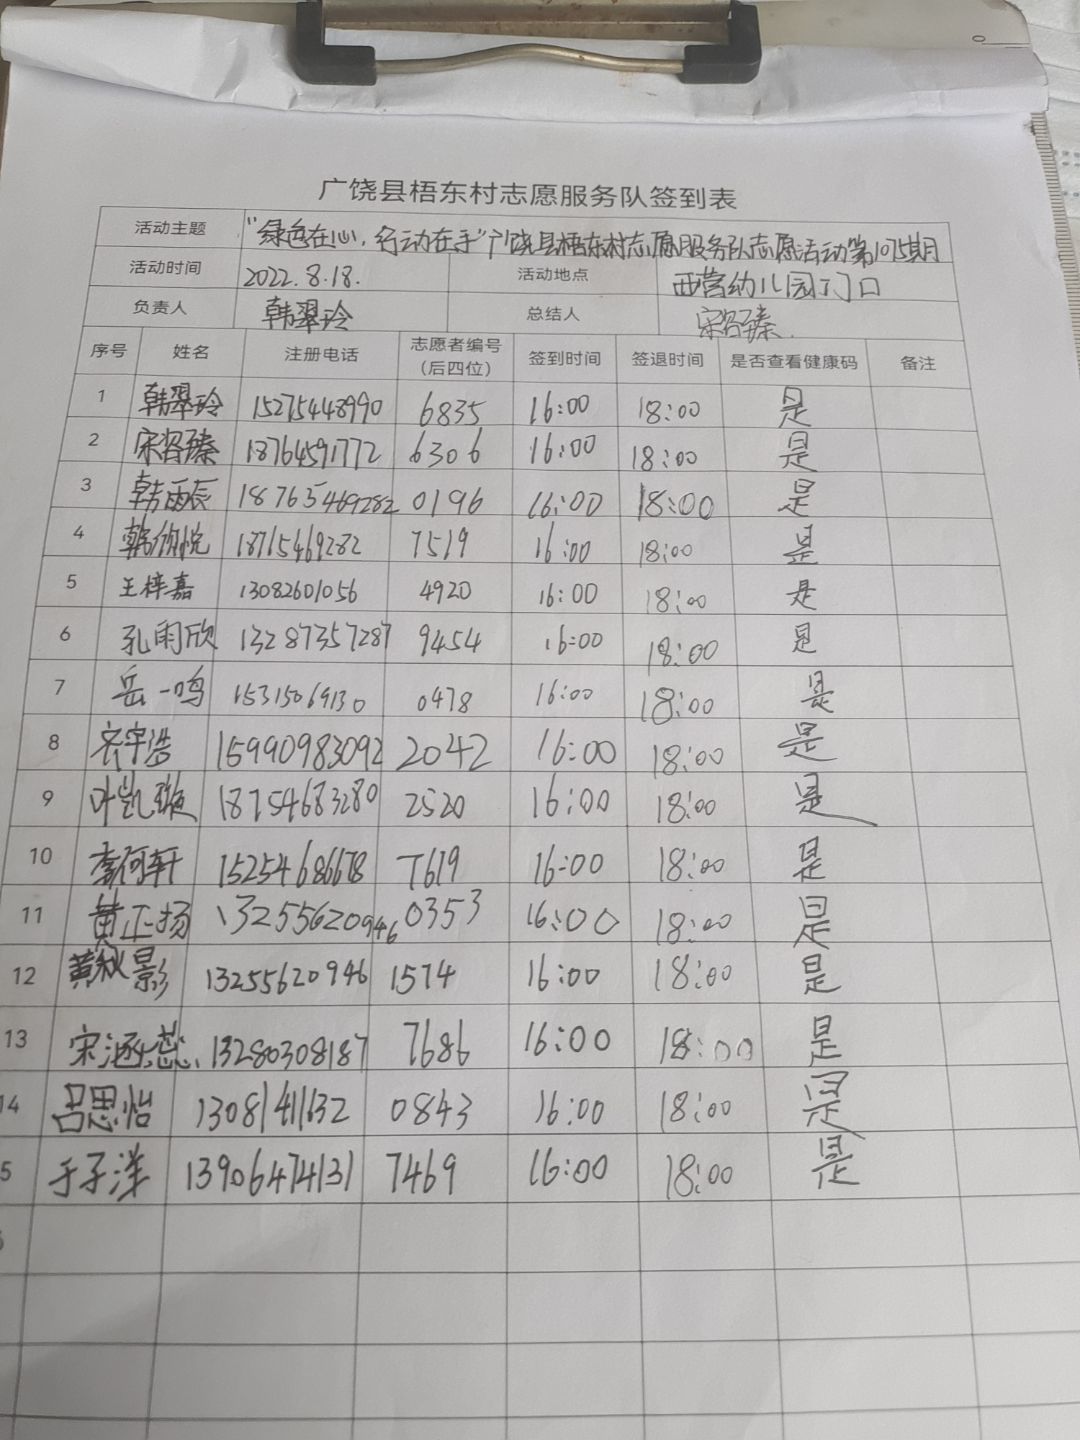 广饶县梧东村志愿服务队签到表
活动主题 "绿色在心，行动在手"广饶县梧东村志愿服务队志愿活动第105期
活动时间 2022.8.18. 活动地点 西营幼儿园门口
负责人 韩翠玲 总结人 宋
序号 姓名 注册电话 志愿者编号（后四位） 签到时间 签退时间 是否查看健康码 备注
1 韩翠玲 15275448990 6835 16:00 18:00 是
2 宋 18764591772 6306 16:00 18:00 是
3 韩雨辰 18765469282 0196 16:00 18:00 是
4 韩 悦 18765469282 7519 16:00 18:00 是
5 王梓嘉 13082601056 4920 16:00 18:00 是
6 孔雨欣 13287357287 9454 16:00 18:00 是
7 岳一鸣 15315069130 0478 16:00 18:00 是
8 齐宇浩 15990983092 2042 16:00 18:00 是
9 叶凯璇 18754683280 2520 16:00 18:00 是
10 李何轩 15254686678 7619 16:00 18:00 是
11 黄正扬 13255620946 0353 16:00 18:00 是
12 黄秋影 13255620946 1574 16:00 18:00 是
13 宋涵蕊 13280308187 7686 16:00 18:00 是
14 吕思怡 13081411632 0843 16:00 18:00 是
5 于子洋 13906474131 7469 16:00 18:00 是